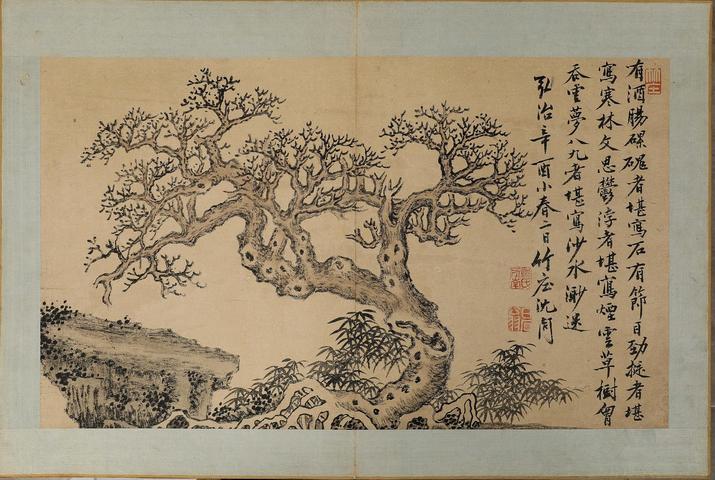 有酒腸磥磈者堪寫石有節目勁挺者堪
寫寒林文思鬱浡者堪寫煙雲草樹胷
吞雲夢八九者堪寫沙水渺迷
弘治辛酉小春二日竹庄沈周